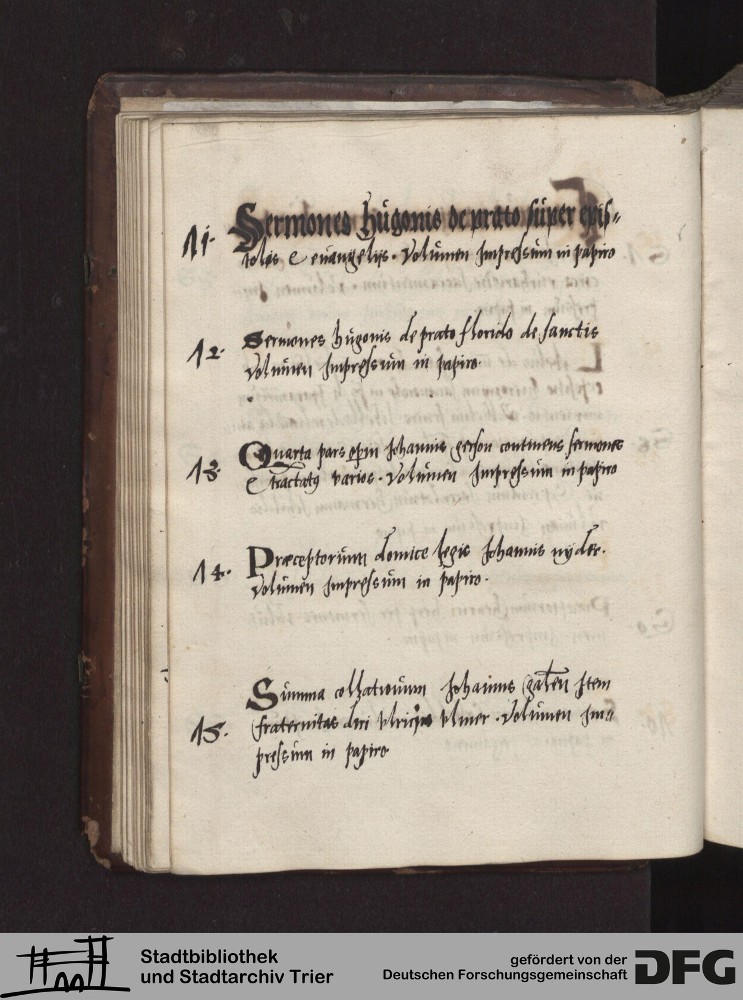 11. Sermones hugonis de prato super epis„
tolas & euangelijs. Volumen Impressum in papiro
12. Sermones hugonis de prato florido de sanctis
Volumen Impressum in papiro.
13. Quarta pars opũ Johannis gerson continens sermones
& tractatꝰ varios. Volumen Impressum in papiro
14. Præceptorium diuine legis Johannis nyder.
Volumen Impressum in papiro.
Summa collationum Johannis galeñ Item
15. fraternitas dñi Ulrici Ulmer. Volumen Im„
pressum in papiro
Stadtbibliothek
und Stadtarchiv Trier
gefördert von der
Deutschen Forschungsgemeinschaft
DFG